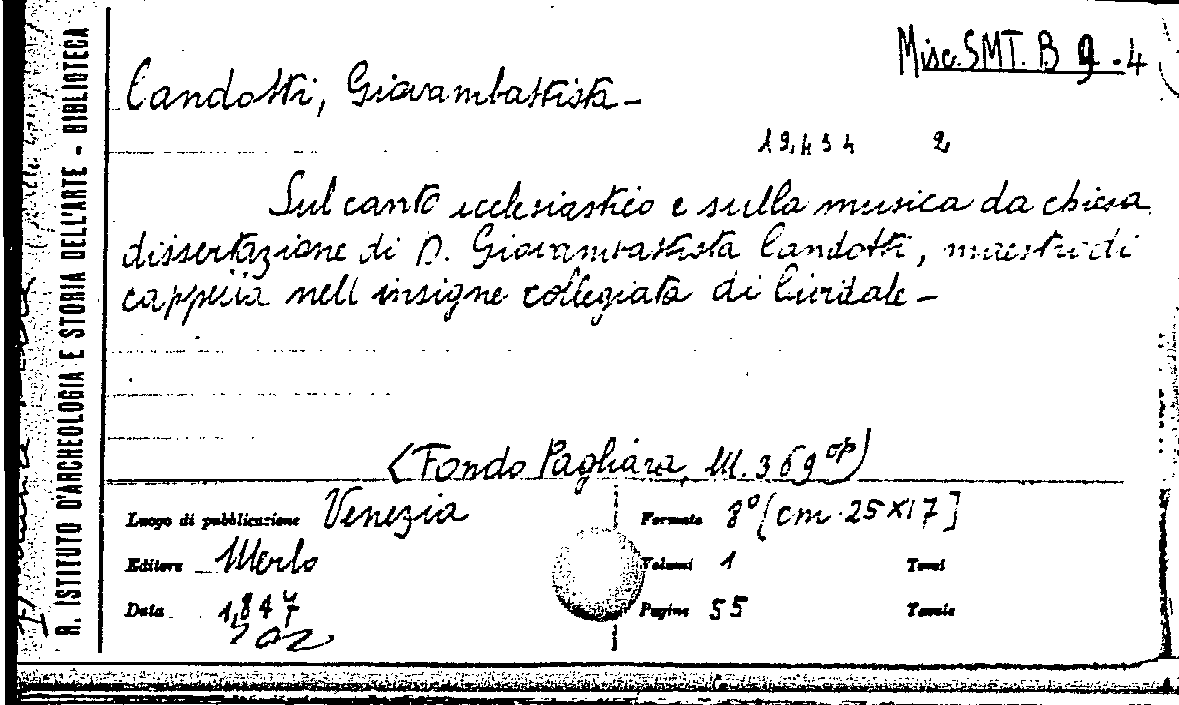 Misc. SMT. B 9-4
Candotti, Giovambattista -
19,434 2
Sul canto ecclesiastico e sulla musica da chiesa
dissertazione di D. Giovambattista Candotti, maestro di
cappella nell'insigne collegiata di Cividale -
(Fondo Pagliara, M. 369 op)
Luogo di pubblicazione Venezia
Formato 8° [cm. 25x17]
Editore Merlo
Volumi 1
Tomi
Data 1,847
Pagine 55
Tavole
202
R. ISTITUTO D'ARCHEOLOGIA E STORIA DELL'ARTE - BIBLIOTECA